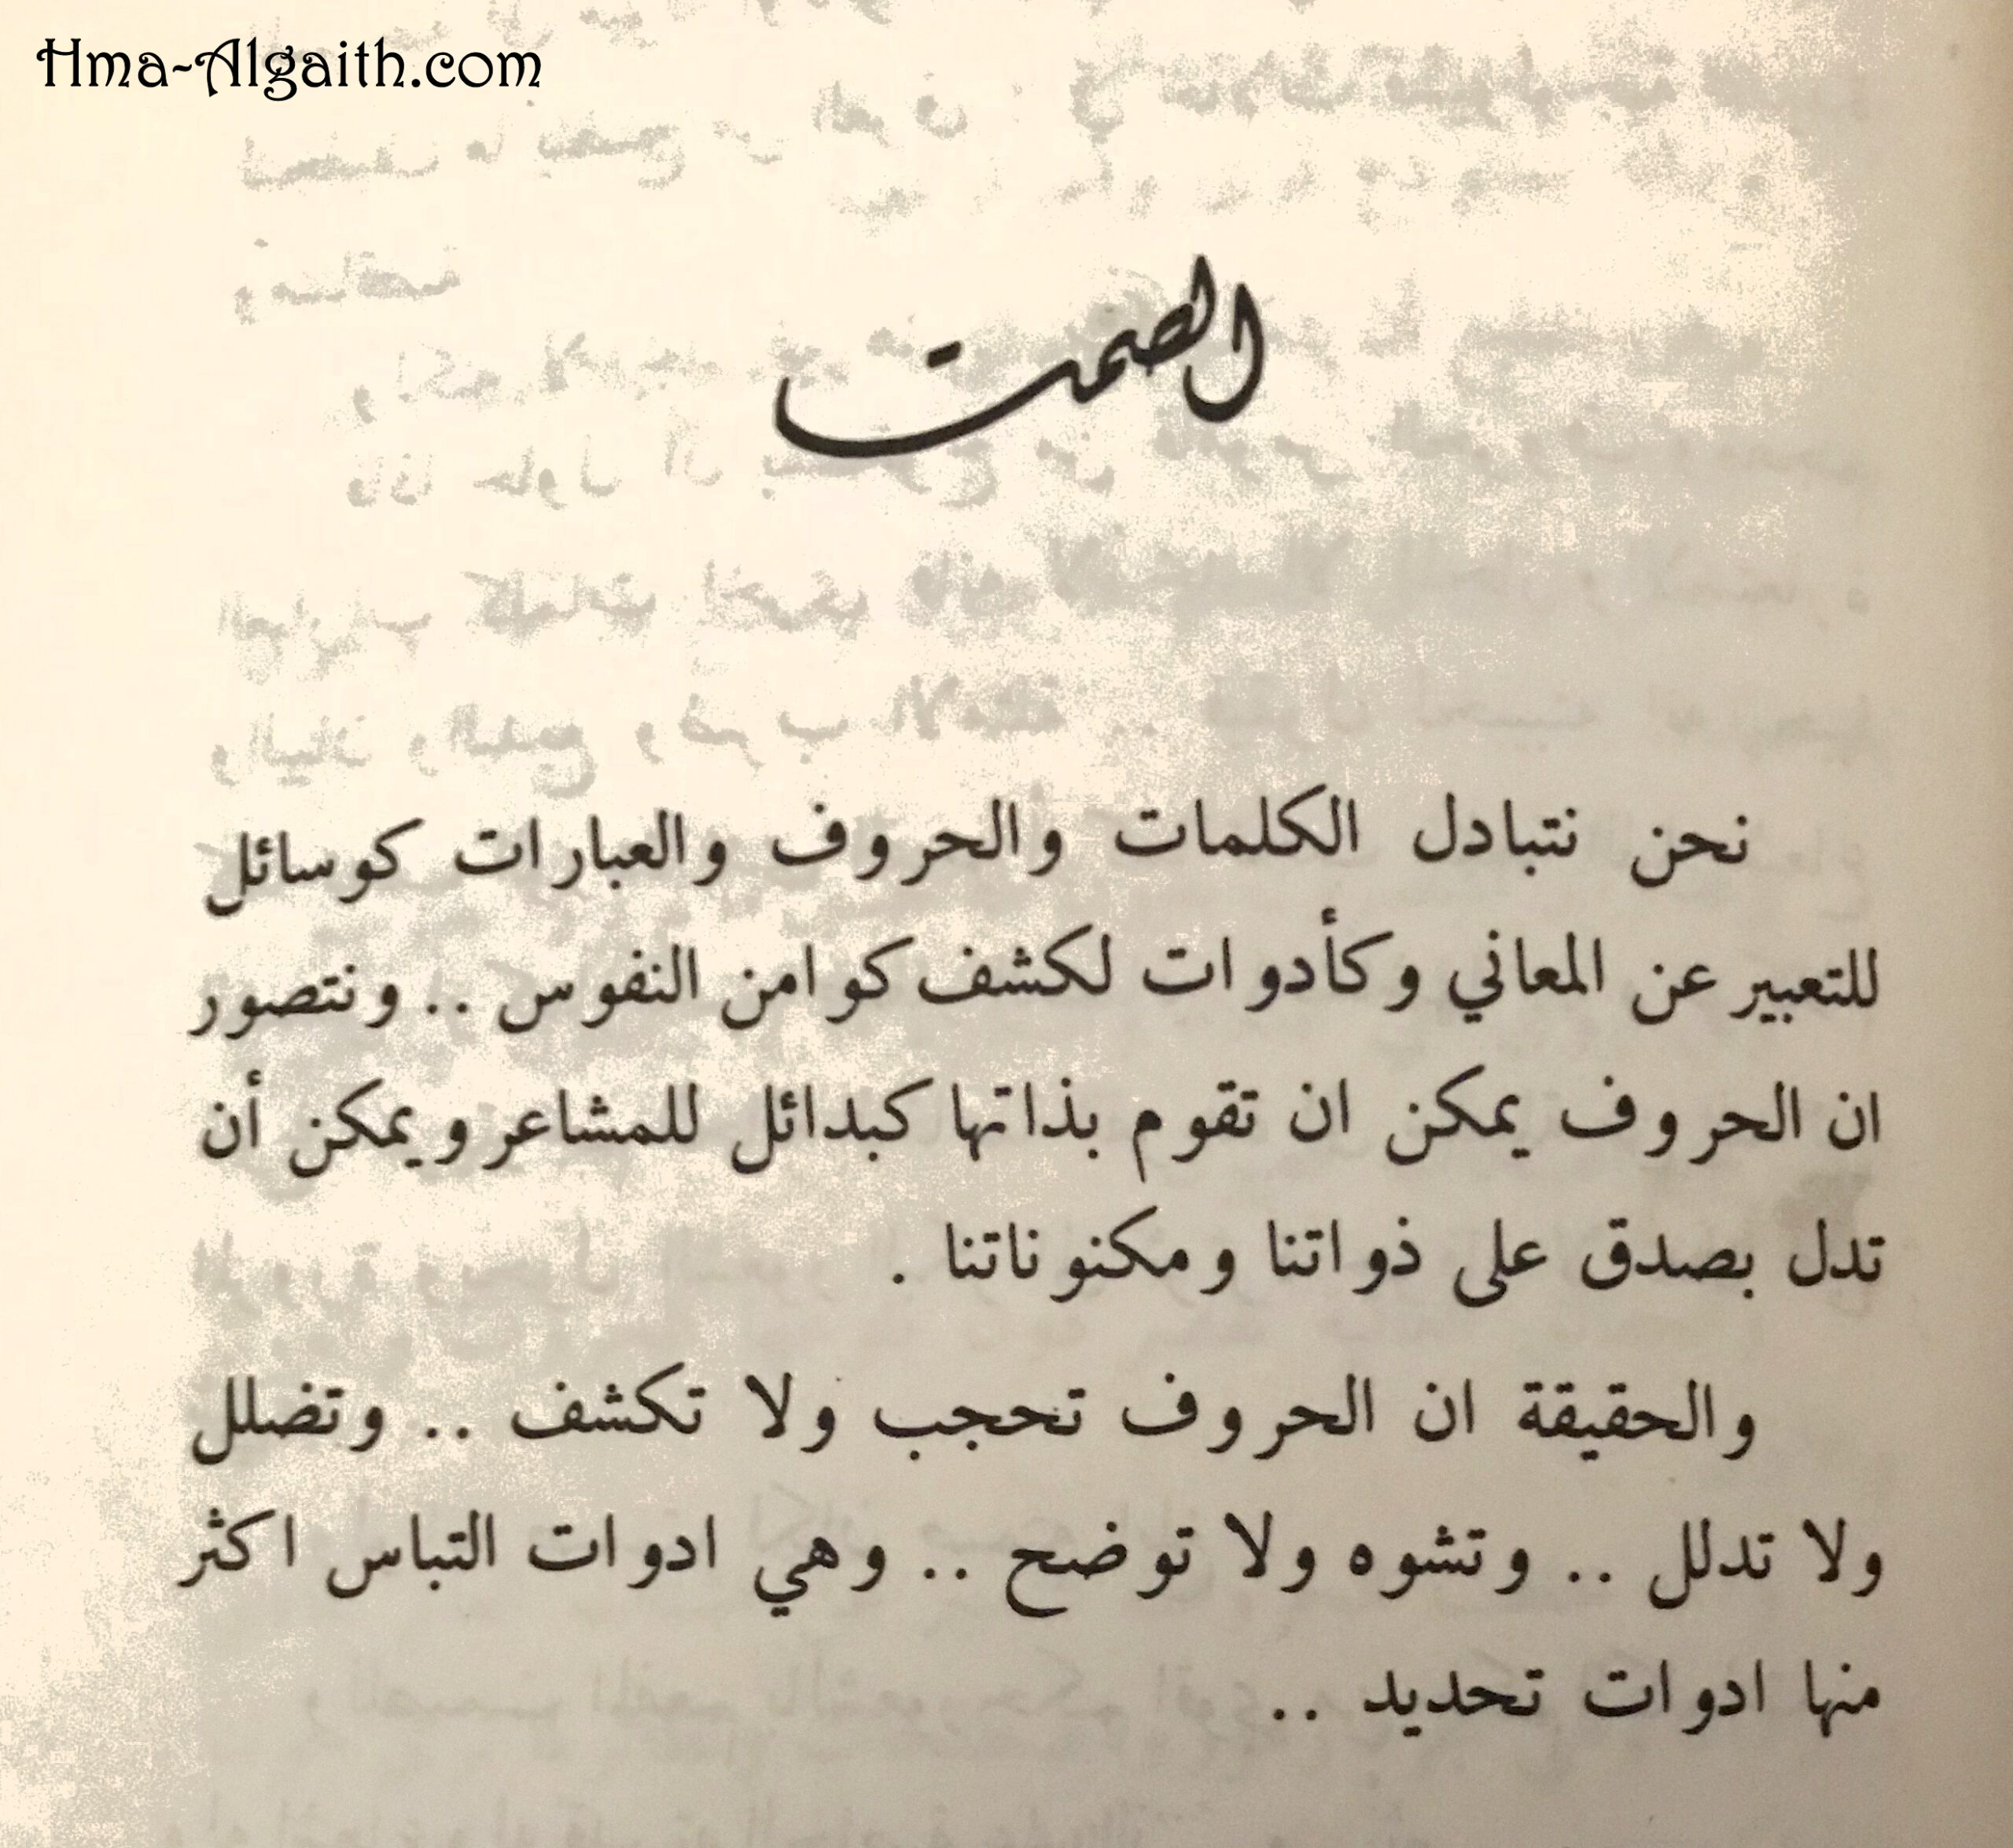 Hma-Algaith.com
الصمت
نحن نتبادل الكلمات والحروف والعبارات كوسائل
للتعبير عن المعاني وكأدوات لكشف كوامن النفوس .. ونتصور
ان الحروف يمكن ان تقوم بذاتها كبدائل للمشاعر ويمكن أن
تدل بصدق على ذواتنا ومكنوناتنا .
والحقيقة ان الحروف تحجب ولا تكشف .. وتضلل
ولا تدلل .. وتشوه ولا توضح .. وهي ادوات التباس اكثر
منها ادوات تحديد ..